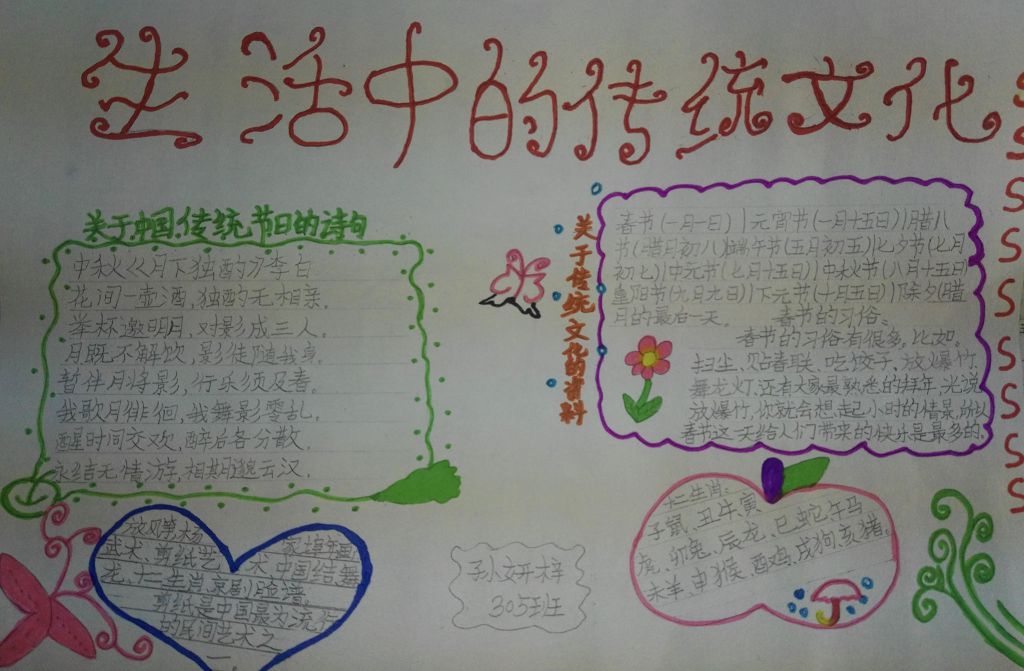 生活中的传统文化
关于中国传统节日的诗句
中秋《月下独酌》李白
花间一壶酒,独酌无相亲.
举杯邀明月,对影成三人.
月既不解饮,影徒随我身
暂伴月将影,行乐须及春.
我歌月徘徊,我舞影零乱.
醒时间交欢,醉后各分散.
永结无情游,相期邈云汉.
关于传统文化的资料
春节(一月一日)|元宵节(一月十五日)|腊八
节(腊月初八)端午节(五月初五)七夕节(七月
初七)|中元节(七月十五日)|中秋节(八月十五日)
重阳节(九月九日)|下元节(十月五日)|除夕(腊
月的最后一天。 春节的习俗。
春节的习俗有很多。比如。
扫尘、贴春联、吃饺子、放爆竹、
舞龙灯,还有大家最熟悉的拜年,光说
放爆竹,你就会想起小时的情景,所以
春节这一天给人们带来的快乐是最多的.
放风筝
武术 剪纸艺术 中国结舞
龙、十二生肖京剧脸谱。
剪纸是中国最为流行
的民间艺术之
一
孙妍梓
305班
十二生肖:
子鼠、丑牛寅
虎、卯兔、辰龙、巳蛇午马
未羊、申猴、酉鸡、戌狗亥猪.